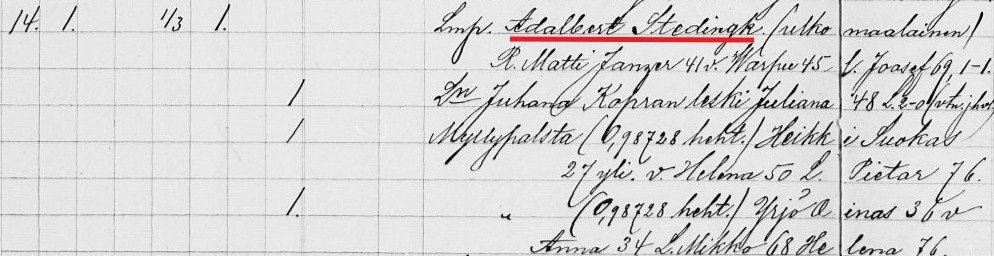 14. 1. 1/3 1. Lmp. Adalbert Stedingk (ulkomaalainen)
R. Matti Janzer 41 v. Warpue 45. l. Joosef 69, 1-1.
1 Ln Juhana Kopran leski Juliana 48 L. 2-0
1 Myllypalsta (0,98728 heht.) Heikki Suokas
27 yli. v. Helena 50 L. Pietar 76.
1. " (0,98728 heht.) Yrjö Oinas 36 v
Anna 34 L. Mikko 68 Helena 76.